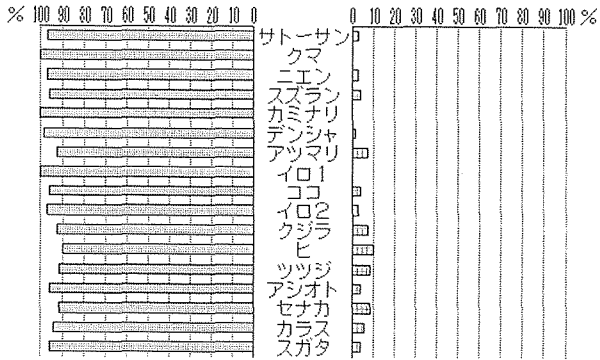 % 100 90 80 70 60 50 40 30 20 10 0 0 10 20 30 40 50 60 70 80 90 100 %
サトーサン
クマ
ニエン
スズラン
カミナリ
デンシャ
アツマリ
イロ1
ココ
イロ2
クジラ
ヒ
ツツジ
アシオト
セナカ
カラス
スガタ